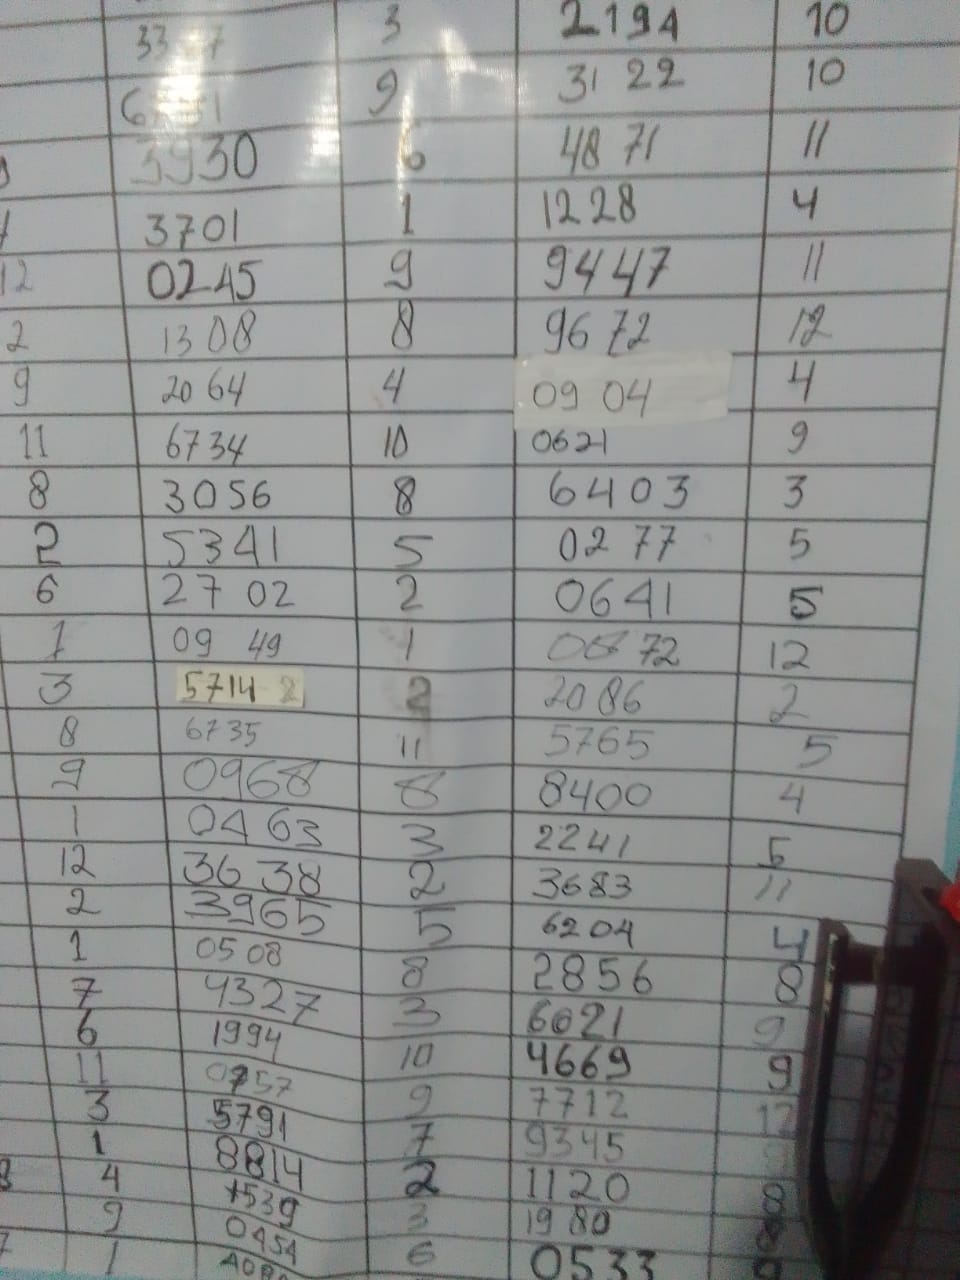 3 2194 10
9 3122 10
3930 6 4871 11
3701 1 1228 4
12 0245 9 9447 11
2 1308 8 9672 12
9 2064 4 0904 4
11 6734 10 0621 9
8 3056 8 6403 3
2 5341 5 0277 5
6 2702 2 0641 5
1 0949 1 72 12
3 5714 2 2086 2
8 6735 11 5765 5
9 0968 8 8400 4
1 0463 3 2241 5
12 3638 2 3683 11
2 3965 5 6204 4
1 0508 8 2856 8
7 9327 3 6021 9
6 1994 10 4669 9
11 9 7712 12
3 5791 7 9345
1 8814 2 1120 8
4 3 1980 8
9 0454 6 0533 9
1